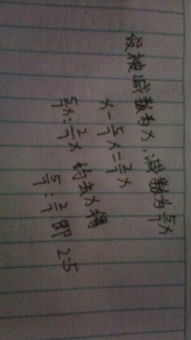 设被减数为x,减数为5/7x
x-5/7x=2/7x
5/7x:2/7x 约去x得
5/7:2/7 即 2:5